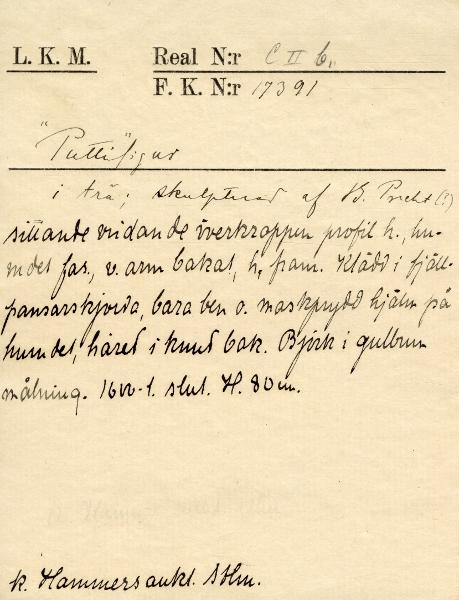 L. K. M. Real N:r C II b.
F. K. N:r 17391
"Putti"figur
i trä; skulpterad af B. Precht (?)
sittande vridande överkroppen profil h., hu-
vudet fas., v. arm bakåt, h. fram. Klädd i fjäll-
pansarskjorta, bara ben o. maskprydd hjälm på
huvudet, håret i knut bak. Björk i gulbrun
målning. 1600-t. slut. H. 80 cm.
k. Hammersaukt. Sthm.